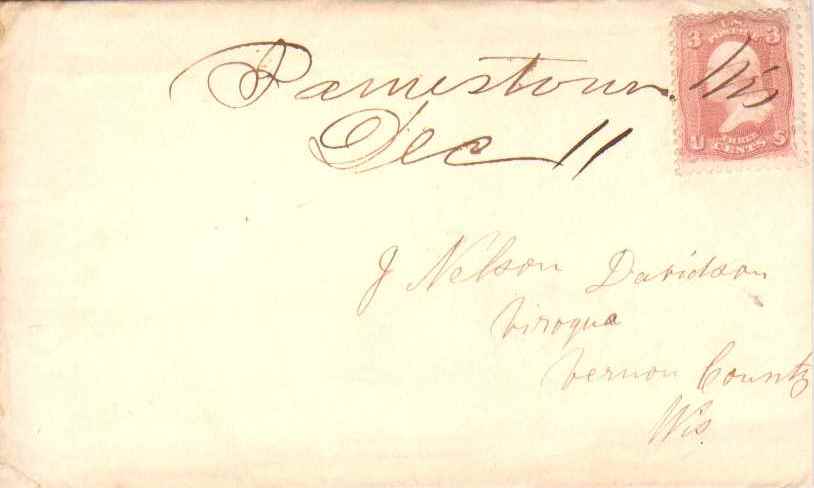 Jamestown Wis
Dec 11
U.S. POSTAGE
3 3
U THREE CENTS S
J Nelson Davidson
Viroqua
Vernon County
Wis.